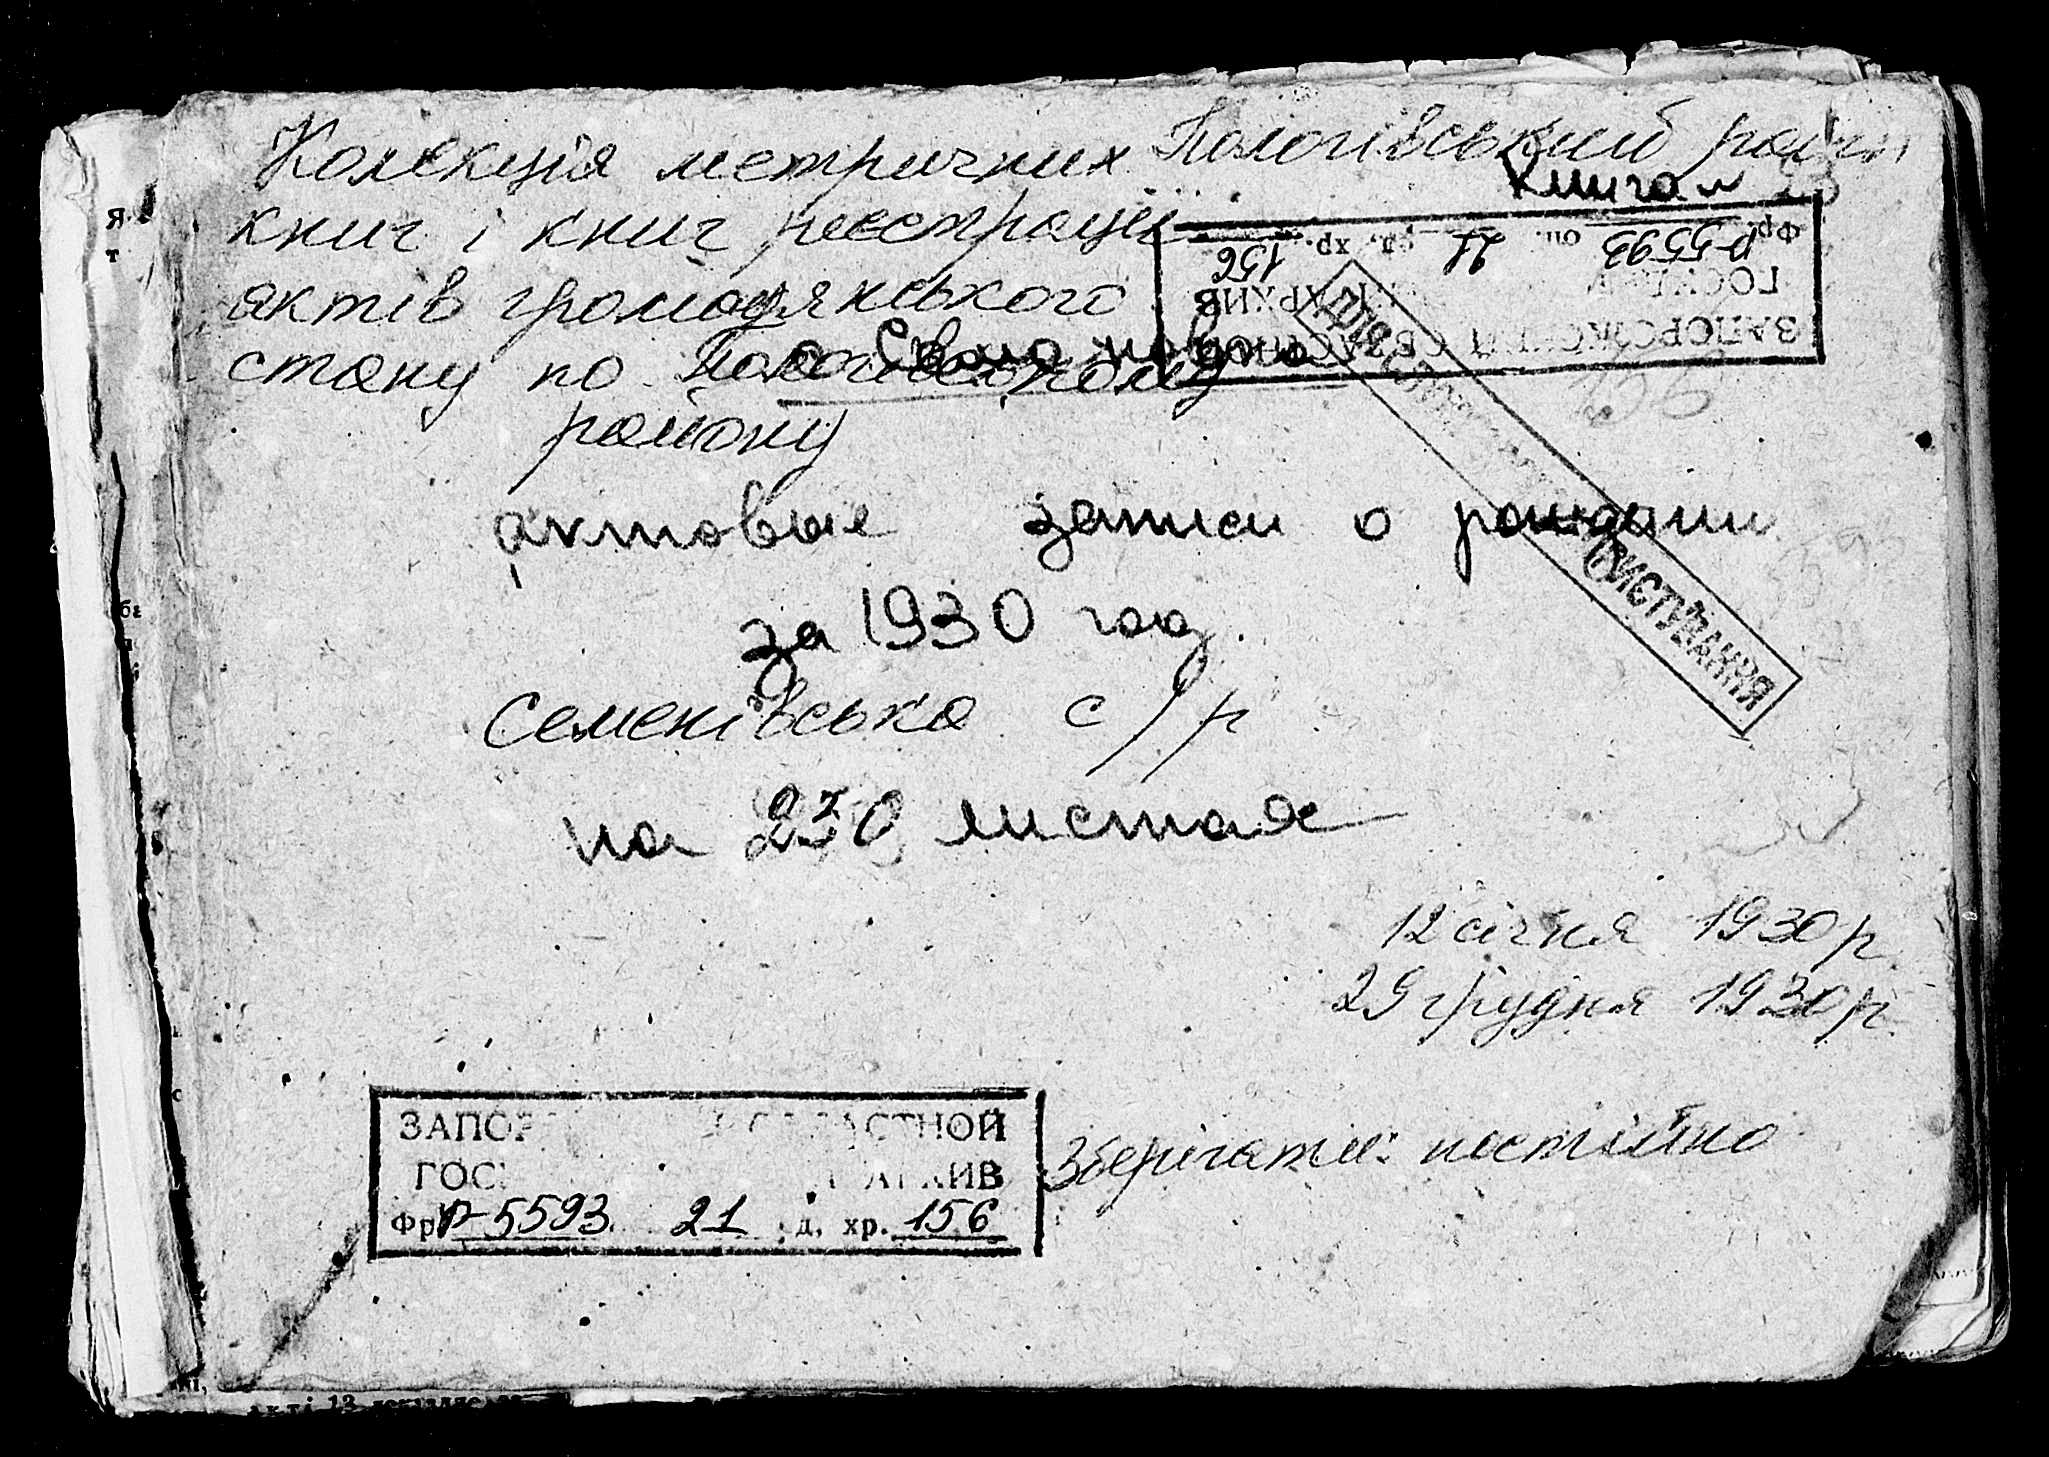 Колекція метричних Пологівський район
книг і книг реєстрації
Книга №
актів громадянського
стану по Пологівському
району
Фр. Р-5593 оп. 21 ед. хр. 156
ЗАПОРОЖСКИЙ ОБЛАСТНОЙ
АРХИВ
актовые записи о рождении
за 1930 год.
Семенівська с/р
на 230 листах
КОРИСТУВАННЯ
12 січня 1930 р.
29 грудня 1930 р.
ЗАПОР ОБЛАСТНОЙ
ГОС АРХИВ
Фр Р-5593 21 д. хр. 156
Зберігати: постійно